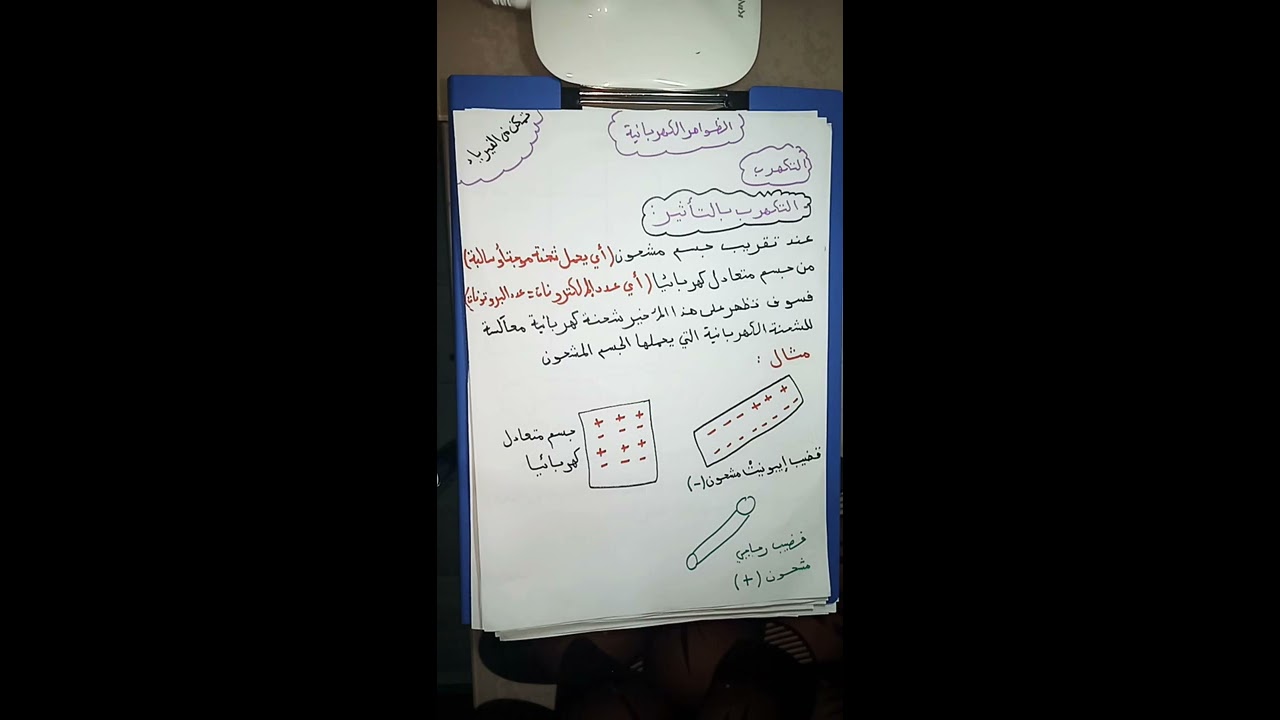 تمكن في الفيزياء
الظواهر الكهربائية
التكهرب
التكهرب بالتأثير
عند تقريب جسم مشحون (أي يحمل شحنة موجبة أو سالبة)
من جسم متعادل كهربائيا (أي عدد الإلكترونات = عدد البروتونات)
فسوف تظهر على هذا الأخير شحنة كهربائية معاكسة
للشحنة الكهربائية التي يحملها الجسم المشحون
مثال :
+ + +
- - -
+ + +
- - -
جسم متعادل
كهربائيا
- - - + + +
- - - - - - -
قضيب إيبونيت مشحون (-)
قضيب زجاجي
مشحون (+)